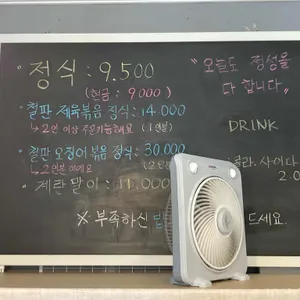 · 정식 : 9.500
(현금 : 9000)
"오늘도 정성을
다 합니다"
· 철판 제육볶음 정식 : 14.000
↳ 2인 이상 주문가능해요 (1인분)
DRINK
· 철판 오징어볶음 정식 : 30.000
↳ 2인분 이에요
콜라. 사이다
· 계란말이 : 11.000
2.0
※ 부족하신
드세요.